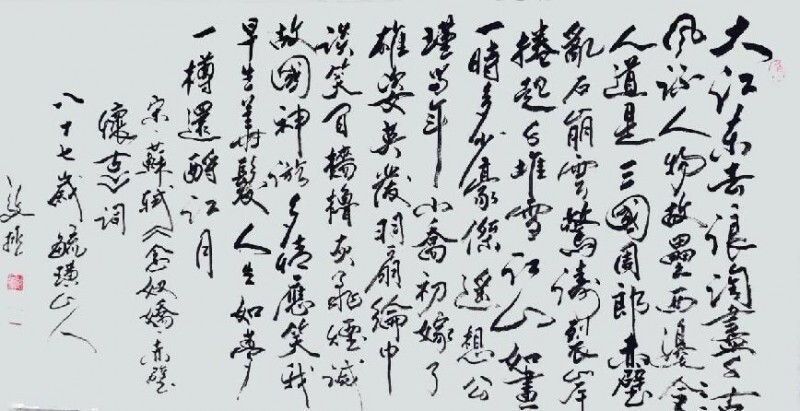 大江東去浪淘盡千古
風流人物故壘西邊
人道是三國周郎赤壁
亂石崩雲驚濤裂岸
捲起千堆雪江山如畫
一時多少豪傑遙想公
瑾當年小喬初嫁了
雄姿英發羽扇綸巾
談笑間檣櫓灰飛煙滅
故國神遊多情應笑我
早生華髮人生如夢
一樽還酹江月
宋蘇軾念奴嬌赤壁
懷古詞
八十七歲毓璜山人